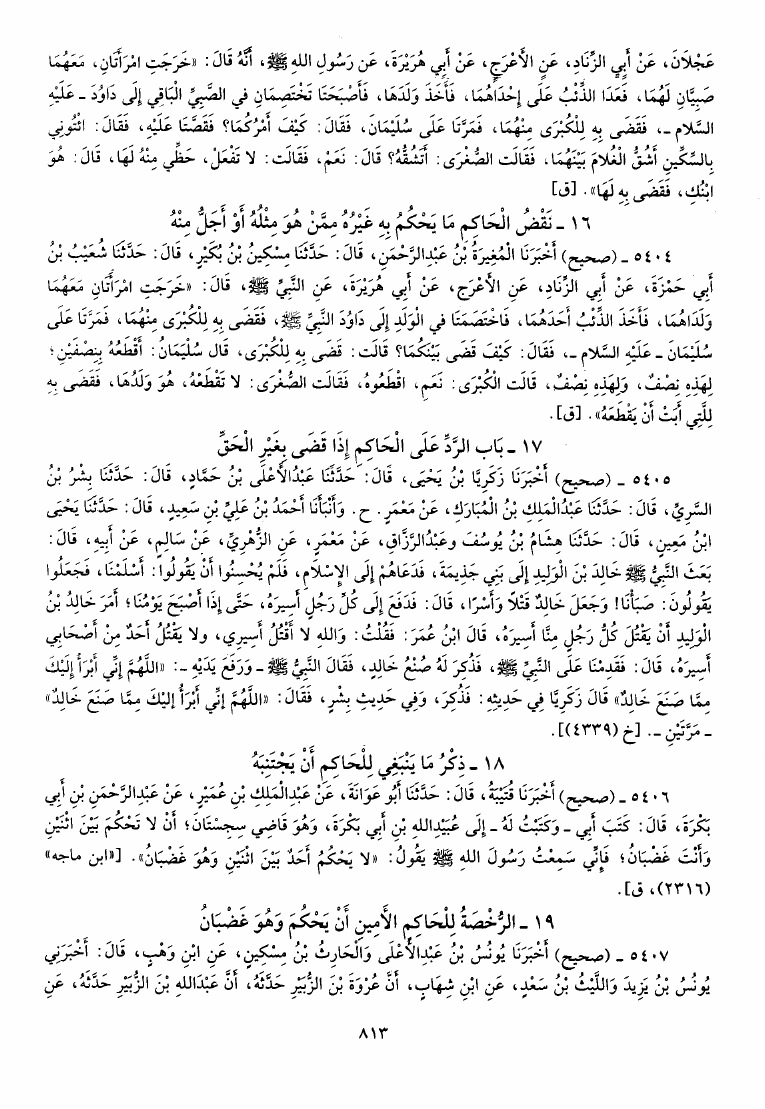 عَجْلَانَ، عَنْ أَبِي الزِّنَادِ، عَنِ الأَعْرَجِ، عَنْ أَبِي هُرَيْرَةَ، عَن رَسُولِ اللهِ ﷺ، أَنَّهُ قَالَ: «خَرَجَتِ امْرَأَتَانِ، مَعَهُمَا
صَبِيَّانِ لَهُمَا، فَعَدَا الذِّئْبُ عَلَى إِحْدَاهُمَا، فَأَخَذَ وَلَدَهَا، فَأَصْبَحَتَا تَخْتَصِمَانِ في الصَّبِيِّ الْبَاقِي إِلَى دَاوُدَ ـ عَلَيْهِ
السَّلام ـ، فَقَضَى بِهِ لِلْكُبْرَى مِنْهُمَا، فَمَرَّتَا عَلَى سُلَيْمَانَ، فَقَالَ: كَيْفَ أَمْرُكُمَا؟ فَقَصَّتَا عَلَيْهِ، فَقَالَ: ائْتُونِي
بِالسِّكِّينِ أَشُقُّ الْغُلامَ بَيْنَهُمَا، فَقَالَت الصُّغْرَى: أَتَشُقُّهُ؟ قَالَ: نَعَمْ، فَقَالَت: لا تَفْعَلْ، حَظِّي مِنْهُ لَهَا، قَالَ: هُوَ
ابْنُكِ، فَقَضَى بِهِ لَهَا». [ق]
١٦ ـ نَقْضُ الْحَاكِمِ مَا يَحْكُمُ بِهِ غَيْرُهُ مِمَّنْ هُوَ مِثْلُهُ أَوْ أَجَلُّ مِنْهُ
٥٤٠٤ ـ (صحيح) أَخْبَرَنَا الْمُغِيرَةُ بْنُ عَبْدِالرَّحْمَنِ، قَالَ: حَدَّثَنَا مِسْكِينُ بْنُ بُكَيْرٍ، قَالَ: حَدَّثَنَا شُعَيْبُ بْنُ
أَبِي حَمْزَةَ، عَنْ أَبِي الزِّنَادِ، عَنِ الأَعْرَجِ، عَنْ أَبِي هُرَيْرَةَ، عَنِ النَّبِيِّ ﷺ، قَالَ: «خَرَجَتِ امْرَأَتَانِ مَعَهُمَا
وَلَدَاهُمَا، فَأَخَذَ الذِّئْبُ أَحَدَهُمَا، فَاخْتَصَمَتَا في الْوَلَدِ إِلَى دَاوُدَ النَّبِيِّ ﷺ، فَقَضَى بِهِ لِلْكُبْرَى مِنْهُمَا، فَمَرَّتَا عَلَى
سُلَيْمَانَ ـ عَلَيْهِ السَّلام ـ، فَقَالَ: كَيْفَ قَضَى بَيْنَكُمَا؟ قَالت: قَضَى بِهِ لِلْكُبْرَى، قَال سُلَيْمَانُ: أَقْطَعُهُ بِنِصْفَيْنِ؛
لِهَذِهِ نِصْفٌ، وَلِهَذِهِ نِصْفٌ، قَالَت الْكُبْرَى: نَعَمِ، اقْطَعُوهُ، فَقَالَت الصُّغْرَى: لا تَقْطَعْهُ، هُوَ وَلَدُهَا، فَقَضَى بِهِ
لِلَّتِي أَبَتْ أَنْ يَقْطَعَهُ». [ق].
١٧ ـ بَاب الرَّدِّ عَلَى الْحَاكِمِ إِذَا قَضَى بِغَيْرِ الْحَقِّ
٥٤٠٥ ـ (صحيح) أَخْبَرَنَا زَكَرِيَّا بْنُ يَحْيَى، قَالَ: حَدَّثَنَا عَبْدُالأَعْلَى بْنُ حَمَّادٍ، قَالَ: حَدَّثَنَا بِشْرُ بْنُ
السَّرِيِّ، قَالَ: حَدَّثَنَا عَبْدُالْمَلِكِ بْنُ الْمُبَارَكِ، عَنْ مَعْمَرٍ. ح. وَأَنْبَأَنَا أَحْمَدُ بْنُ عَلِيِّ بْنِ سَعِيدٍ، قَالَ: حَدَّثَنَا يَحْيَى
ابْنُ مَعِينٍ، قَالَ: حَدَّثَنَا هِشَامُ بْنُ يُوسُفَ وعَبْدُالرَّزَّاقِ، عَنْ مَعْمَرٍ، عَنِ الزُّهْرِيِّ، عَنْ سَالِمٍ، عَنْ أَبِيهِ، قَالَ:
بَعَثَ النَّبِيُّ ﷺ خَالِدَ بْنَ الْوَلِيدِ إِلَى بَنِي جَذِيمَةَ، فَدَعَاهُمْ إِلَى الإِسْلَامِ، فَلَمْ يُحْسِنُوا أَنْ يَقُولُوا: أَسْلَمْنَا، فَجَعَلُوا
يَقُولُونَ: صَبَأْنَا! وَجَعَلَ خَالِدٌ قَتْلاً وَأَسْرًا، قَالَ: فَدَفَعَ إِلَى كُلِّ رَجُلٍ أَسِيرَهُ، حَتَّى إِذَا أَصْبَحَ يَوْمُنَا؛ أَمَرَ خَالِدُ بْنُ
الْوَلِيدِ أَنْ يَقْتُلَ كُلُّ رَجُلٍ مِنَّا أَسِيرَهُ، قَالَ ابْنُ عُمَرَ: فَقُلْتُ: وَاللهِ لا أَقْتُلُ أَسِيرِي، ولا يَقْتُلُ أَحَدٌ مِنْ أَصْحَابِي
أَسِيرَهُ، قَالَ: فَقَدِمْنَا عَلَى النَّبِيِّ ﷺ، فَذُكِرَ لَهُ صُنْعُ خَالِدٍ، فَقَالَ النَّبِيُّ ﷺ ـ وَرَفَعَ يَدَيْهِ ـ: «اللَّهُمَّ إِنِّي أَبْرَأُ إِلَيْكَ
مِمَّا صَنَعَ خَالِدٌ» قَالَ زَكَرِيَّا فِي حَدِيثِهِ: فَذُكِرَ، وَفِي حَدِيثِ بِشْرٍ، فَقَالَ: «اللَّهُمَّ إِنِّي أَبْرَأُ إِلَيْكَ مِمَّا صَنَعَ خَالِدٌ»
ـ مَرَّتَيْنِ ـ. [خ (٤٣٣٩)].
١٨ ـ ذِكْرُ مَا يَنْبَغِي لِلْحَاكِمِ أَنْ يَجْتَنِبَهُ
٥٤٠٦ ـ (صحيح) أَخْبَرَنَا قُتَيْبَةُ، قَالَ: حَدَّثَنَا أَبُو عَوَانَةَ، عَنْ عَبْدِالْمَلِكِ بْنِ عُمَيْرٍ، عَنْ عَبْدِالرَّحْمَنِ بْنِ أَبِي
بَكْرَةَ، قَالَ: كَتَبَ أَبِي ـ وَكَتَبْتُ لَهُ ـ إِلَى عُبَيْدِاللهِ بْنِ أَبِي بَكْرَةَ، وَهُوَ قَاضِي سِجِسْتَانَ؛ أَنْ لا تَحْكُمَ بَيْنَ اثْنَيْنِ
وَأَنْتَ غَضْبَانُ؛ فَإِنِّي سَمِعْتُ رَسُولَ اللهِ ﷺ يَقُولُ: «لا يَحْكُمُ أَحَدٌ بَيْنَ اثْنَيْنِ وَهُوَ غَضْبَانُ». [«ابن ماجه»
(٢٣١٦)، ق].
١٩ ـ الرُّخْصَةُ لِلْحَاكِمِ الأَمِينِ أَنْ يَحْكُمَ وَهُوَ غَضْبَانُ
٥٤٠٧ ـ (صحيح) أَخْبَرَنَا يُونُسُ بْنُ عَبْدِالأَعْلَى وَالْحَارِثُ بْنُ مِسْكِينٍ، عَنِ ابْنِ وَهْبٍ، قَالَ: أَخْبَرَنِي
يُونُسُ بْنُ يَزِيدَ وَاللَّيْثُ بْنُ سَعْدٍ، عَنِ ابْنِ شِهَابٍ، أَنَّ عُرْوَةَ بْنَ الزُّبَيْرِ حَدَّثَهُ، أَنَّ عَبْدَاللهِ بْنَ الزُّبَيْرِ حَدَّثَهُ، عَنِ
٨١٣